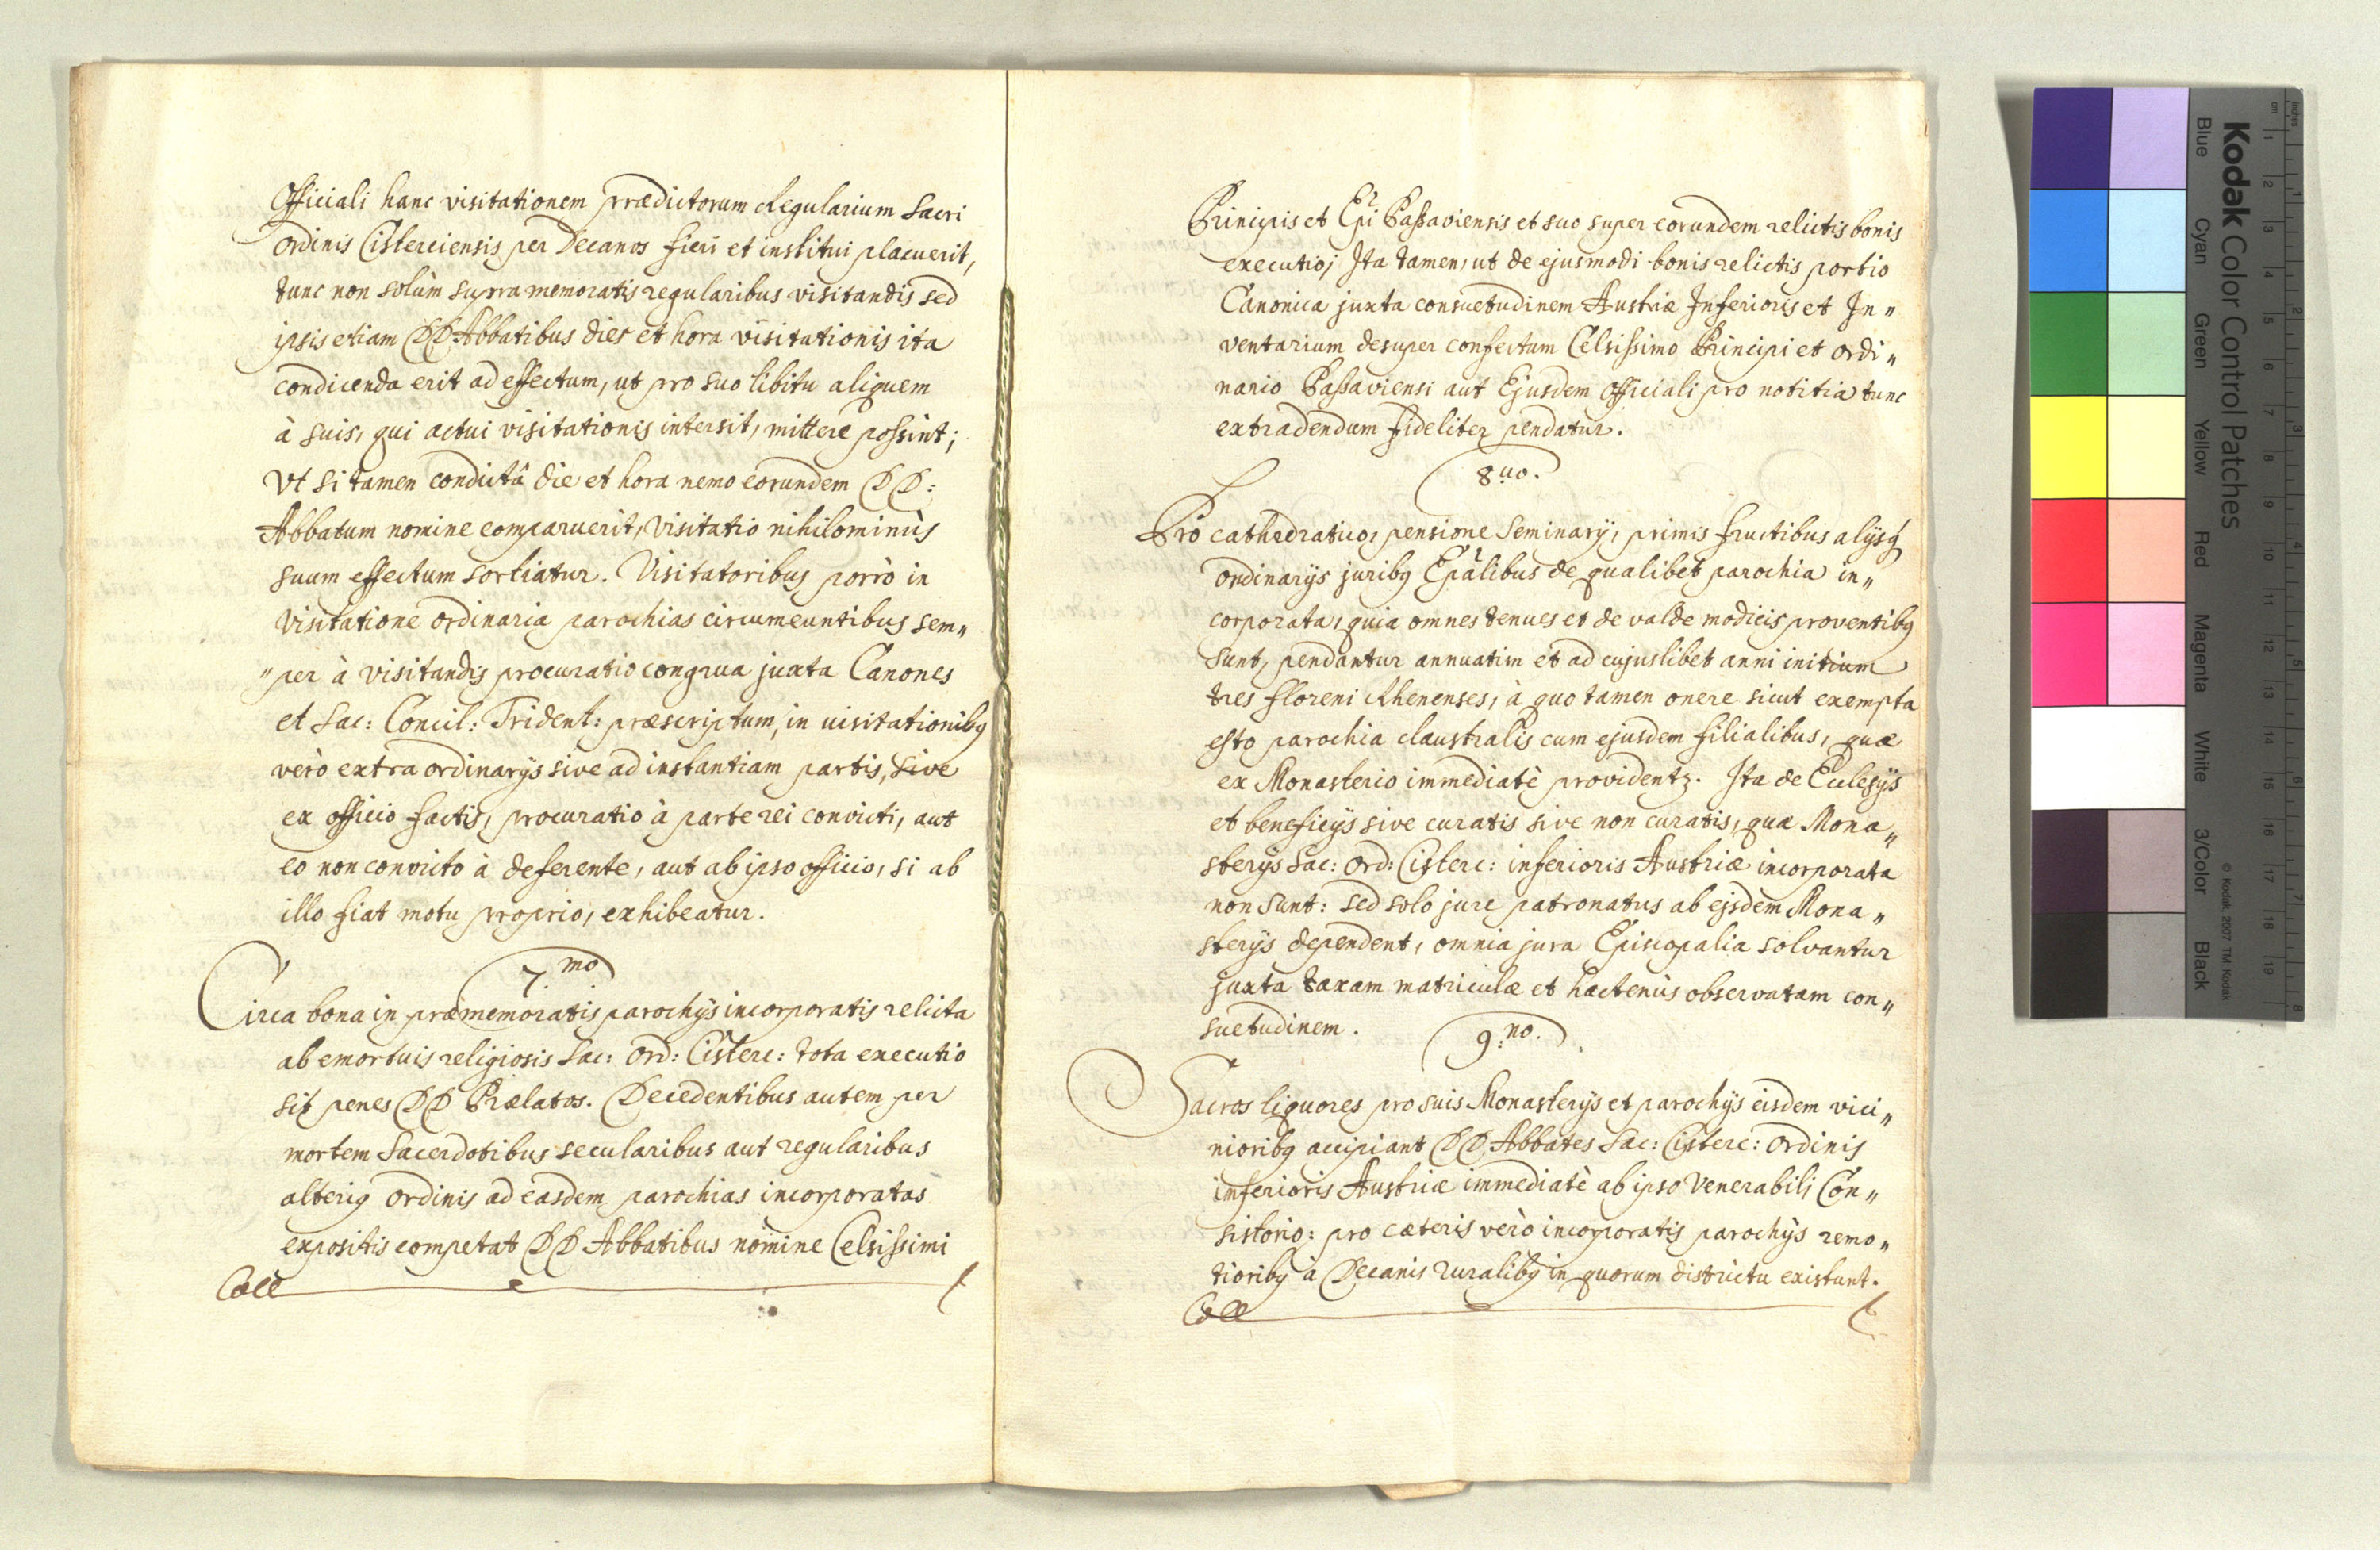 Officiali hanc visitationem prædictorum Regularium Sacri
ordinis Cisterciensis per Decanos fieri et institui placuerit,
tunc non solùm supra memoratis regularibus visitandis sed
ipsis etiam DD Abbatibus dies et hora visitationis ita
condicenda erit ad effectum, ut pro suo libitu aliquem
à suis, qui actui visitationis intersit, mittere possint;
Vt si tamen condictâ die et hora nemo eorundem DD:
Abbatum nomine comparuerit, visitatio nihilominùs
suum effectum sortiatur. Visitatoribus porrò in
visitatione ordinaria parochias circumeuntibus sem„
„per à visitandis procuratio congrua juxta Canones
et Sac: Concil: Trident: præscriptum, in visitationibꝰ
verò extra ordinarijs sive ad instantiam partis, sive
ex officio factis, procuratio à parte rei convicti, aut
eo non convicto à deferente, aut ab ipso officio, si ab
illo fiat motu proprio, exhibeatur.
7.mo
Circa bona in præmemoratis parochijs incorporatis relicta
ab emortuis religiosis Sac: Ord: Cisterc: tota executio
sit penes DD Prælatos. Decedentibus autem per
mortem Sacerdotibus secularibus aut regularibus
alteriꝰ ordinis ad easdem parochias incorporatas
expositis competat DD Abbatibus nomine Celsissimi
Coll
Principis et Epi Passaviensis et suo super eorundem relictis bonis
executio; Ita tamen, ut de ejusmodi bonis relictis portio
Canonica juxta consuetudinem Austriæ Inferioris et In„
ventarium desuper confectum Celsissimo Principi et ordi„
nario Passaviensi aut Ejusdem Officiali pro notitia tunc
extradendum fideliter pendatur.
8.uo.
Pro cathedratico, pensione Seminarij, primis fructibus alijsq
ordinarijs juribꝰ Epalibus de qualibet parochia in„
corporata, quia omnes tenues et de valde modicis proventibꝰ
sunt, pendantur annuatim et ad cujuslibet anni initium
tres floreni Rhenenses, à quo tamen onere sicut exempta
esto parochia claustralis cum ejusdem filialibus, quæ
ex Monasterio immediatè providentꝫ. Ita de Ecclesijs
et beneficijs sive curatis sive non curatis, quæ Mona„
sterijs Sac: Ord: Cisterc: inferioris Austriæ incorporata
non sunt: sed solo jure patronatus ab ejsdem Mona„
sterijs dependent, omnia jura Episcopalia solvantur
juxta taxam matriculæ et hactenùs observatam con„
suetudinem.
9.no.
Sacros liquores pro suis Monasterijs et parochijs eisdem vici„
nioribꝰ accipiant DD Abbates Sac: Cisterc: Ordinis
inferioris Austriæ immediatè ab ipso Venerabili Con„
sistorio: pro cæteris verò incorporatis parochijs remo„
tioribꝰ à Decanis ruralibꝰ in quorum districtu existunt.
Coll
Kodak Color Control Patches
Blue Cyan Green Yellow Red Magenta White 3/Color Black
© Kodak 2007 TM: Kodak
inches 1 2 3 4 5 6 7 8
cm 1 2 3 4 5 6 7 8 9 10 11 12 13 14 15 16 17 18 19